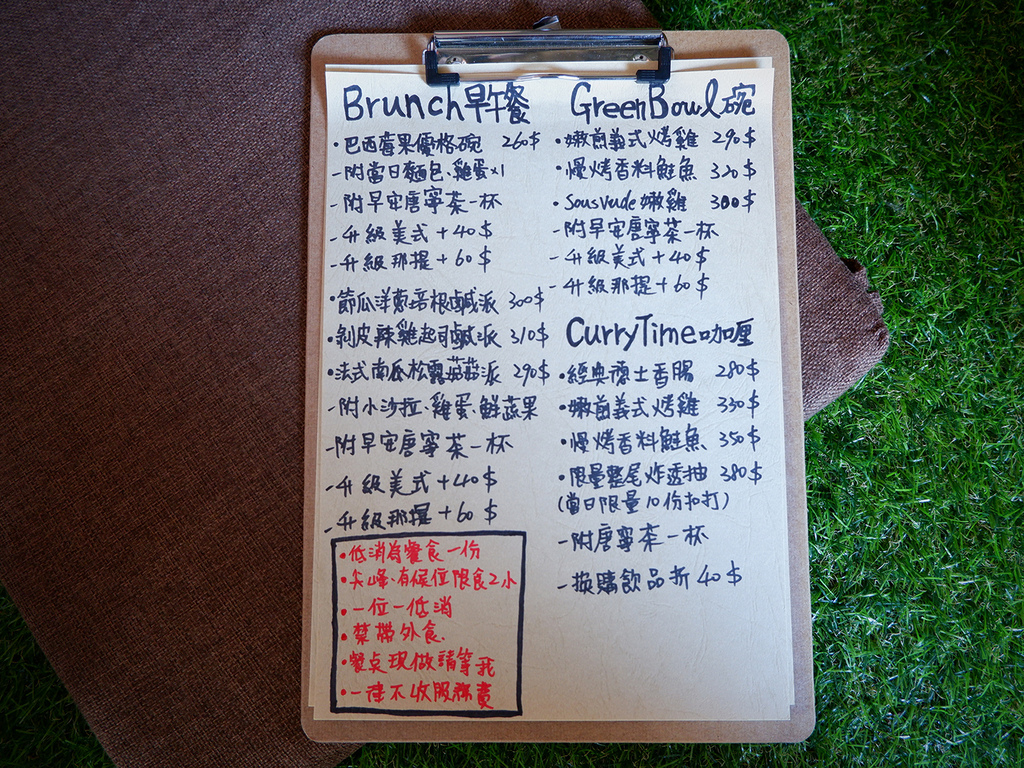 Brunch早午餐
•巴西莓果優格碗 260$
-附當日麵包、雞蛋×1
-附早安唐寧茶一杯
-升級美式+40$
-升級那提+60$
•節瓜洋蔥培根鹹派 300$
•剝皮辣雞起司鹹派 310$
•法式南瓜松露菇菇派 290$
-附小沙拉、雞蛋、鮮蔬果
-附早安唐寧茶一杯
-升級美式+40$
-升級那提+60$
•低消為餐食一份
•尖峰、有候位限食2小
•一位一低消
•禁帶外食、
•餐點現做請等我
•一律不收服務費
GreenBowl碗
•嫩煎義式烤雞 290$
•慢烤香料鮭魚 320$
•SousVude嫩雞 300$
-附早安唐寧茶一杯
-升級美式+40$
-升級那提+60$
CurryTime咖哩
•經典德士香腸 280$
•嫩煎義式烤雞 330$
•慢烤香料鮭魚 350$
•限量整尾炸透抽 380$
(當日限量10份扣打)
-附唐寧茶一杯
-換購飲品折40$